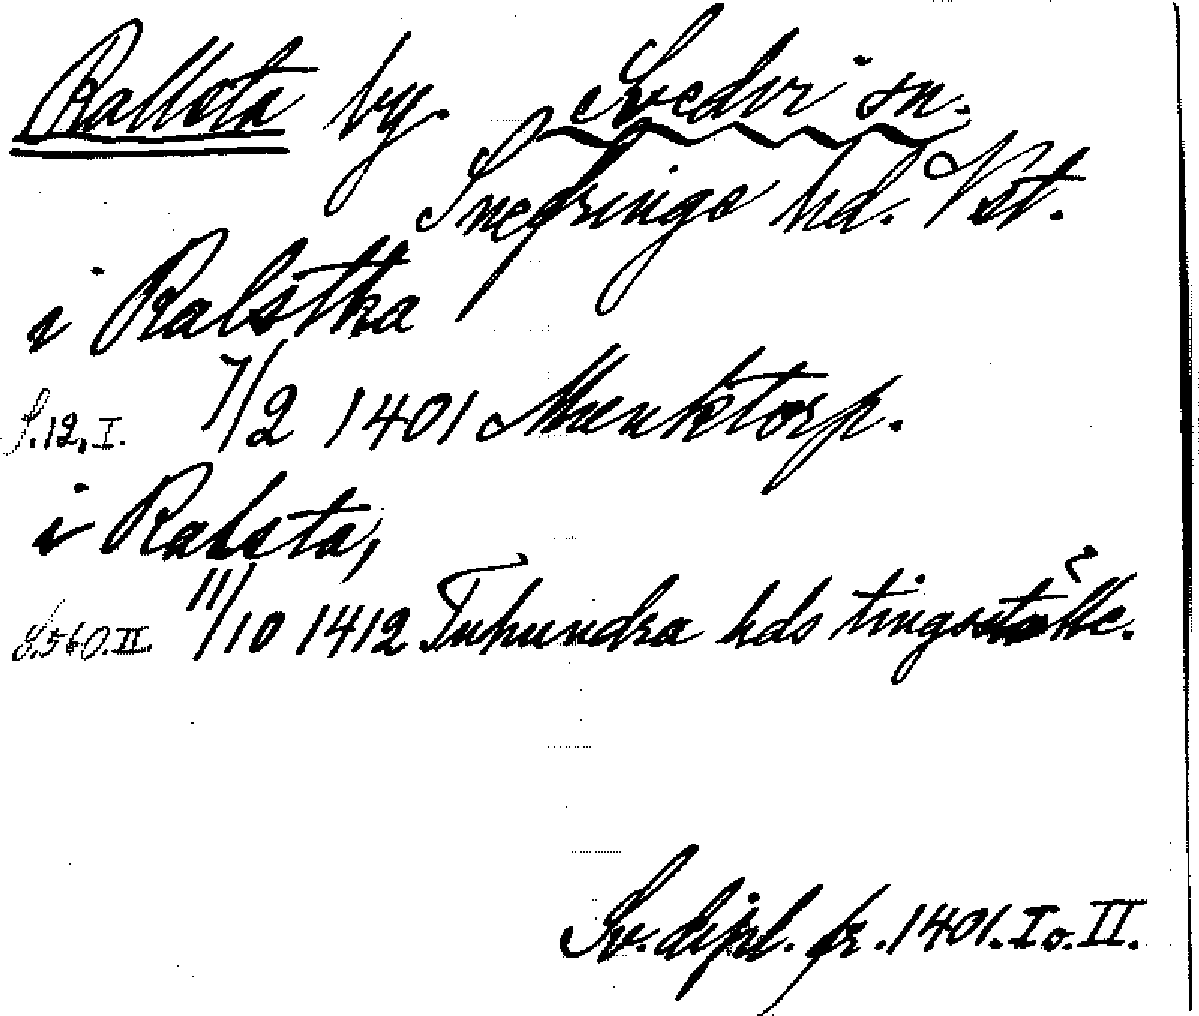 Rallsta by. Svedvi sn.
Snefringe hd. Vst.
i Ralstha
S.12,I. 7/2 1401 Munktorp.
i Ralsta,
S.560.II. 11/10 1412 Tuhundra hds tingställe.
Sv. dipl. fr. 1401. I o. II.